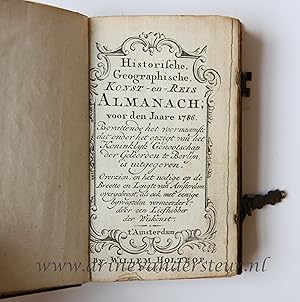 Historische,
Geographische,
Konst-en-Reis
Almanach;
voor den Jaare 1786.
Bevattende het voornaamste
dat onder het opzigt van het
Koninklyk Genootschap
der Geleerden te Berlyn,
is uitgegeven.
Overzien, en het nodige op de
Breette en Lengte van Amsterdam
overgebragt; als ook met eenige
byvoegzelen vermeerdert
door een Liefhebber
der Wiskonst.
t'Amsterdam
By Willem Holtrop
www.arinevandersteur.nl